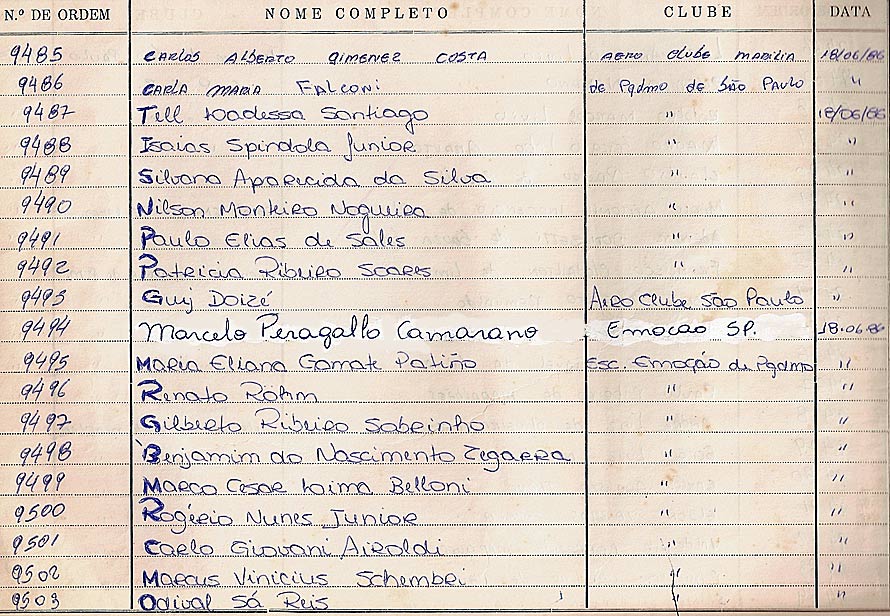 N.º DE ORDEM NOME COMPLETO CLUBE DATA
9485 CARLOS ALBERTO GIMENEZ COSTA AERO CLUBE MARILIA 18/06/86
9486 CARLA MARIA FALCONI de Pqdmo de São Paulo "
9487 Tell Santiago " 18/06/86
9488 Isaias Spindola Junior " "
9489 Silvana Aparecida da Silva " "
9490 Nilson Monteiro Nogueira " "
9491 Paulo Elias de Sales " "
9492 Patricia Ribeiro Soares " "
9493 Guy Doizé Aero Clube São Paulo "
9494 Marcelo Peragallo Camarano Emocao SP. 18.06.86
9495 Maria Eliana Patiño Esc. Emoção de Pqdmo "
9496 Renato Röhm " "
9497 Gilberto Ribeiro Sobrinho " "
9498 Benjamim do Nascimento Zegarra " "
9499 Marco Cesar Lima Belloni " "
9500 Rogério Nunes Junior " "
9501 Carlo Giovani Airoldi " "
9502 Marcus Vinicius Schembri " "
9503 Odival Sá Reis " "